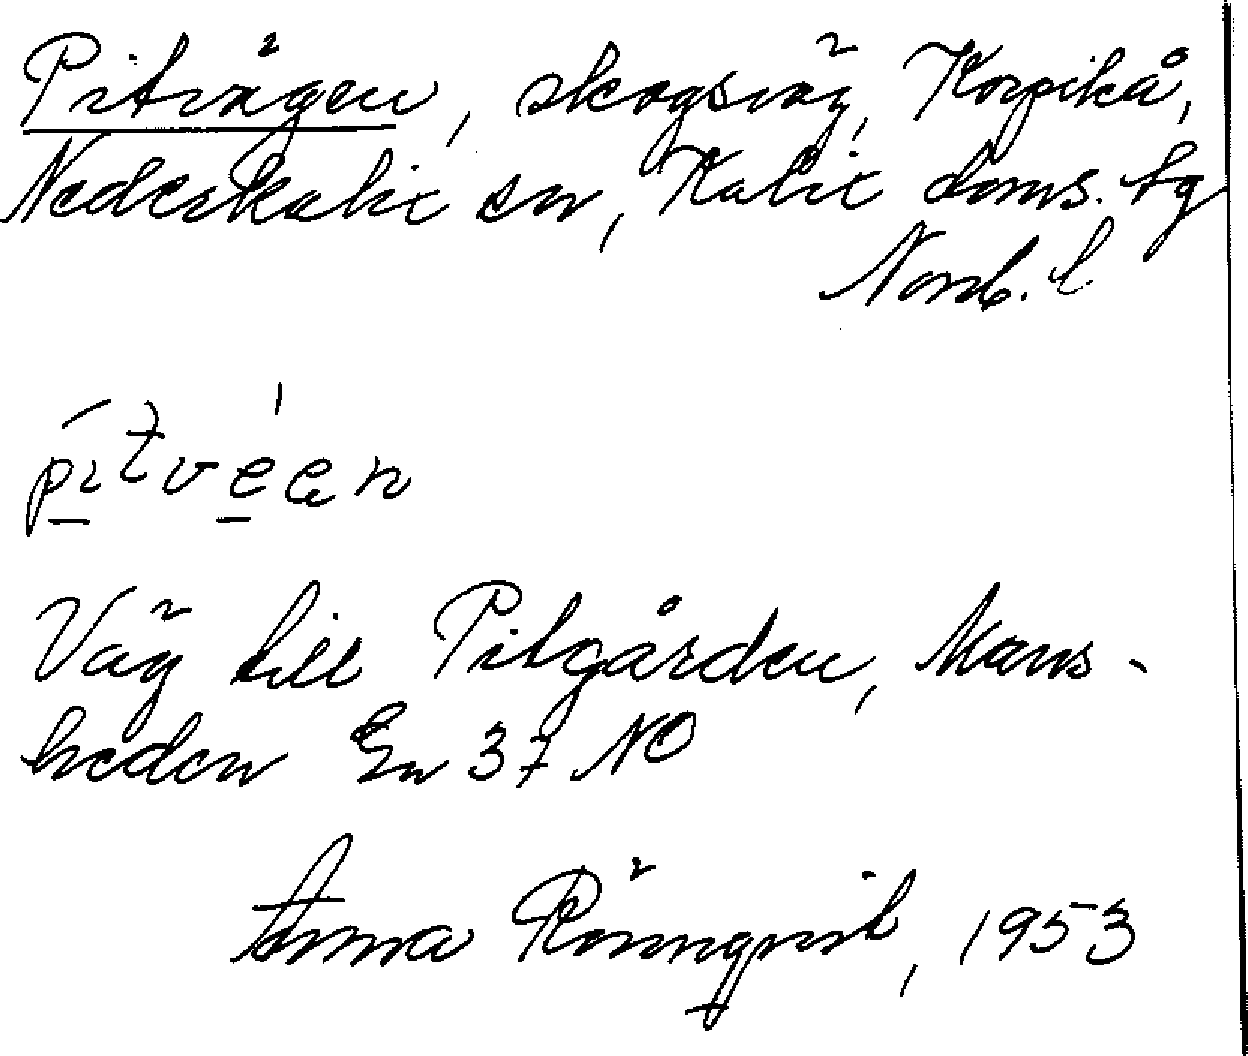 Pitvägen, skogsväg, Korpikå,
Nederkalix sn, Kalix doms. tg
Norrb. l.
pitveen
Väg till Pitgården, Mans-
heden En 37 NO
Anna Rönnqvist, 1953